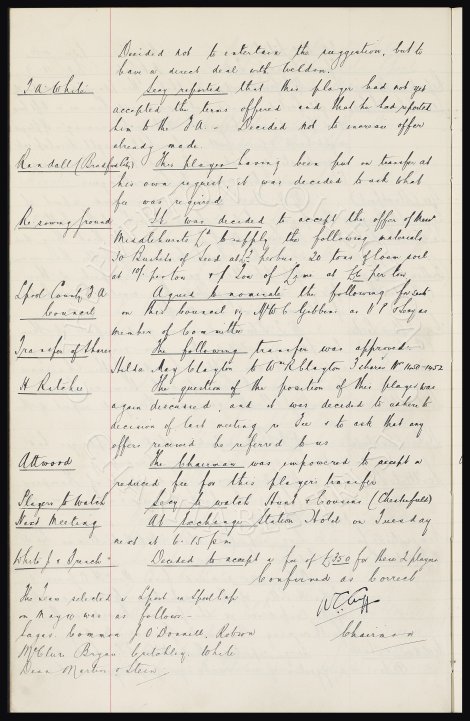 Decided not to entertain the suggestion, but to
have a direct deal with Weldon.
T A White Secy reported that this player had not yet
accepted the terms offered and that he had reported
him to the F.A. - Decided not to increase offer
already made.
Randall (Bradford City) This player having been put on transfer at
his own request, it was decided to ask what
fee was required
Re-sowing ground It was decided to accept the offer of Messrs
Ld to supply the following materials
30 Bushels of seed at per bus. 20 tons of loam soil
at 10/- per ton & 1 Ton of Lime at per ton
Lpool County F A Agreed to nominate the following for seats
Council on this Council viz Mr W C Gibbins as V P & Secy as
member of Committee
Transfer of Shares The following transfer was approved
Hilda May Clayton to Wm R Clayton 3 shares No 1450-1452
H Ritchie The question of the position of this player was
again discussed, and it was decided to adhere to
decision of last meeting re Fee & to ask that any
offers received be referred to us
Attwood The Chairman was empowered to accept a
reduced fee for this players transfer
Players to Watch Secy to watch Hunt & Cousins (Chesterfield)
Next Meeting At Exchange Station Hotel on Tuesday
next at 6.15 pm
White J & French Decided to accept a fee of £350 for these 2 players
Confirmed as Correct
Chairman
The Team selected v Lpool in Lpool Cup
on May was as follows -
Sagar. Common J O'Donnell. Robson
McClure Bryan Critchley. White
Dean Martin & Stein